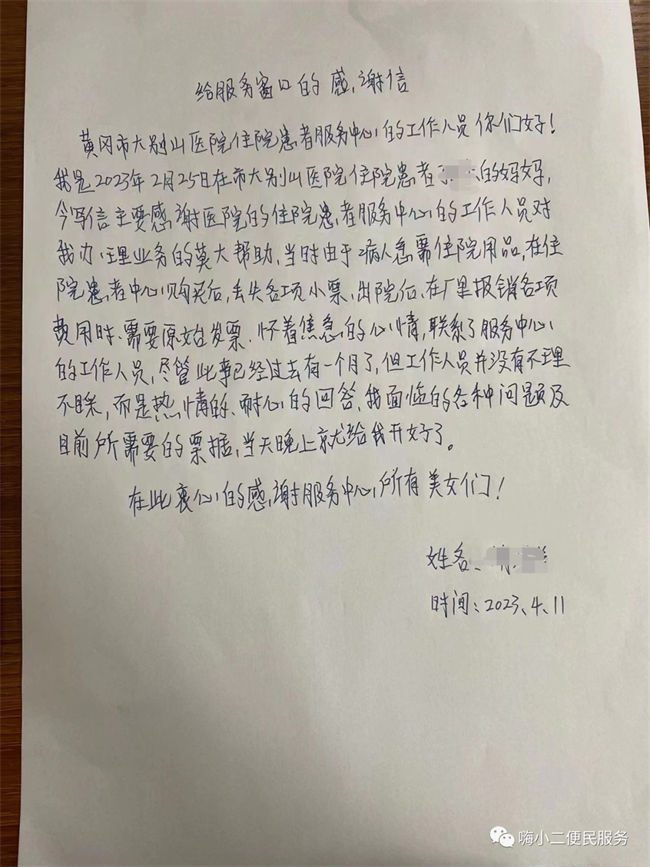 给服务窗口的感谢信
黄冈市大别山医院住院患者服务中心的工作人员你们好！
我是2023年2月25日在市大别山医院住院患者 的妈妈，
今写信主要感谢医院的住院患者服务中心的工作人员对
我办理业务的莫大帮助，当时由于病人急需住院用品，在住
院患者中心购买后，丢失各项小票，出院后、在厂里报销各项
费用时、需要原始发票、怀着焦急的心情，联系了服务中心
的工作人员，尽管此事已经过去有一个月了，但工作人员并没有不理
不睬，而是热情的、耐心的回答、我面临的各种问题及
目前所需要的票据，当天晚上就给我开好了。
在此衷心的感谢服务中心所有美女们！
姓名、
时间：2023、4、11
嗨小二便民服务